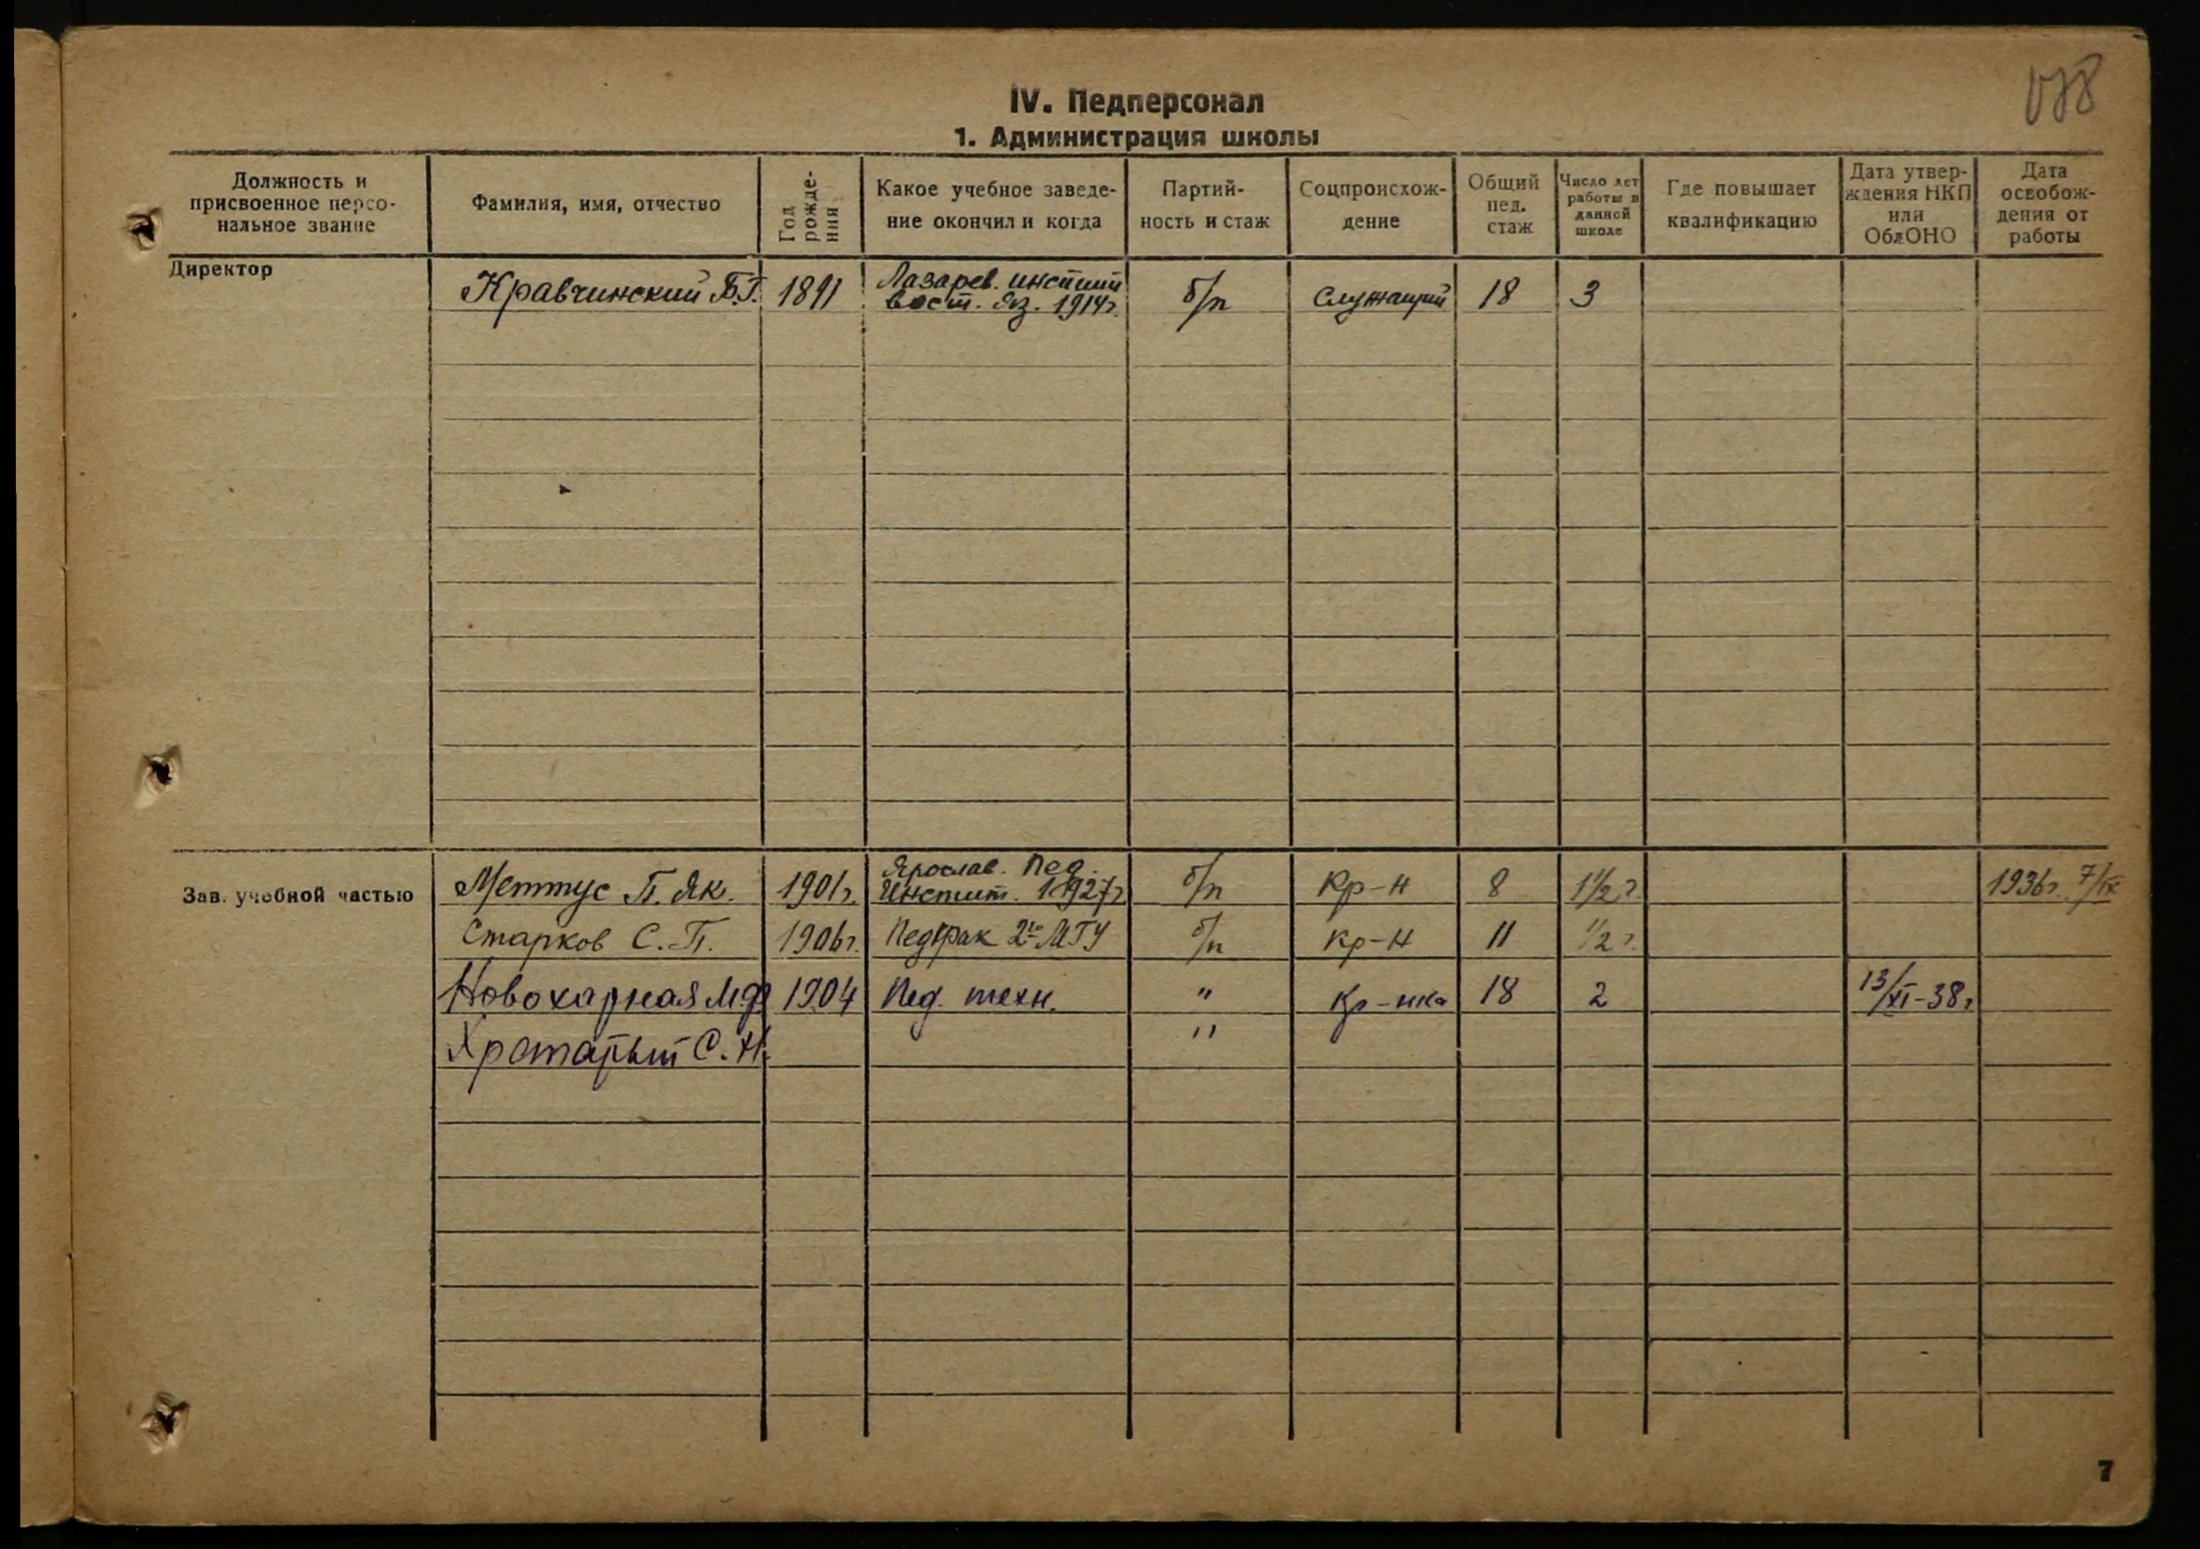 IV. Педперсонал
1. Администрация школы
Должность и присвоенное персо- нальное звание
Фамилия, имя, отчество
Год рожде- ния
Какое учебное заведе- ние окончил и когда
Партий- ность и стаж
Соцпроисхож- дение
Общий пед. стаж
Число лет работы в данной школе
Где повышает квалификацию
Дата утвер- ждения НКП или ОблОНО
Дата освобож- дения от работы
Директор
Кравчинский Б.Г. 1891 Лазарев. инстит вост. яз. 1914г. б/п служащий 18 3
Зав. учебной частью
Меттус П. Як. 1901г. Ярослав. Пед. Инстит. 1927г б/п Кр-н 8 1 1/2 г. 1936г. 7/IX
Старков С. П. 1906г. Педфак 2го МГУ б/п Кр-н 11 1/2 г.
1904 Пед. техн. " Кр-нка 18 2 13/XI-38г
С. Н. "
7